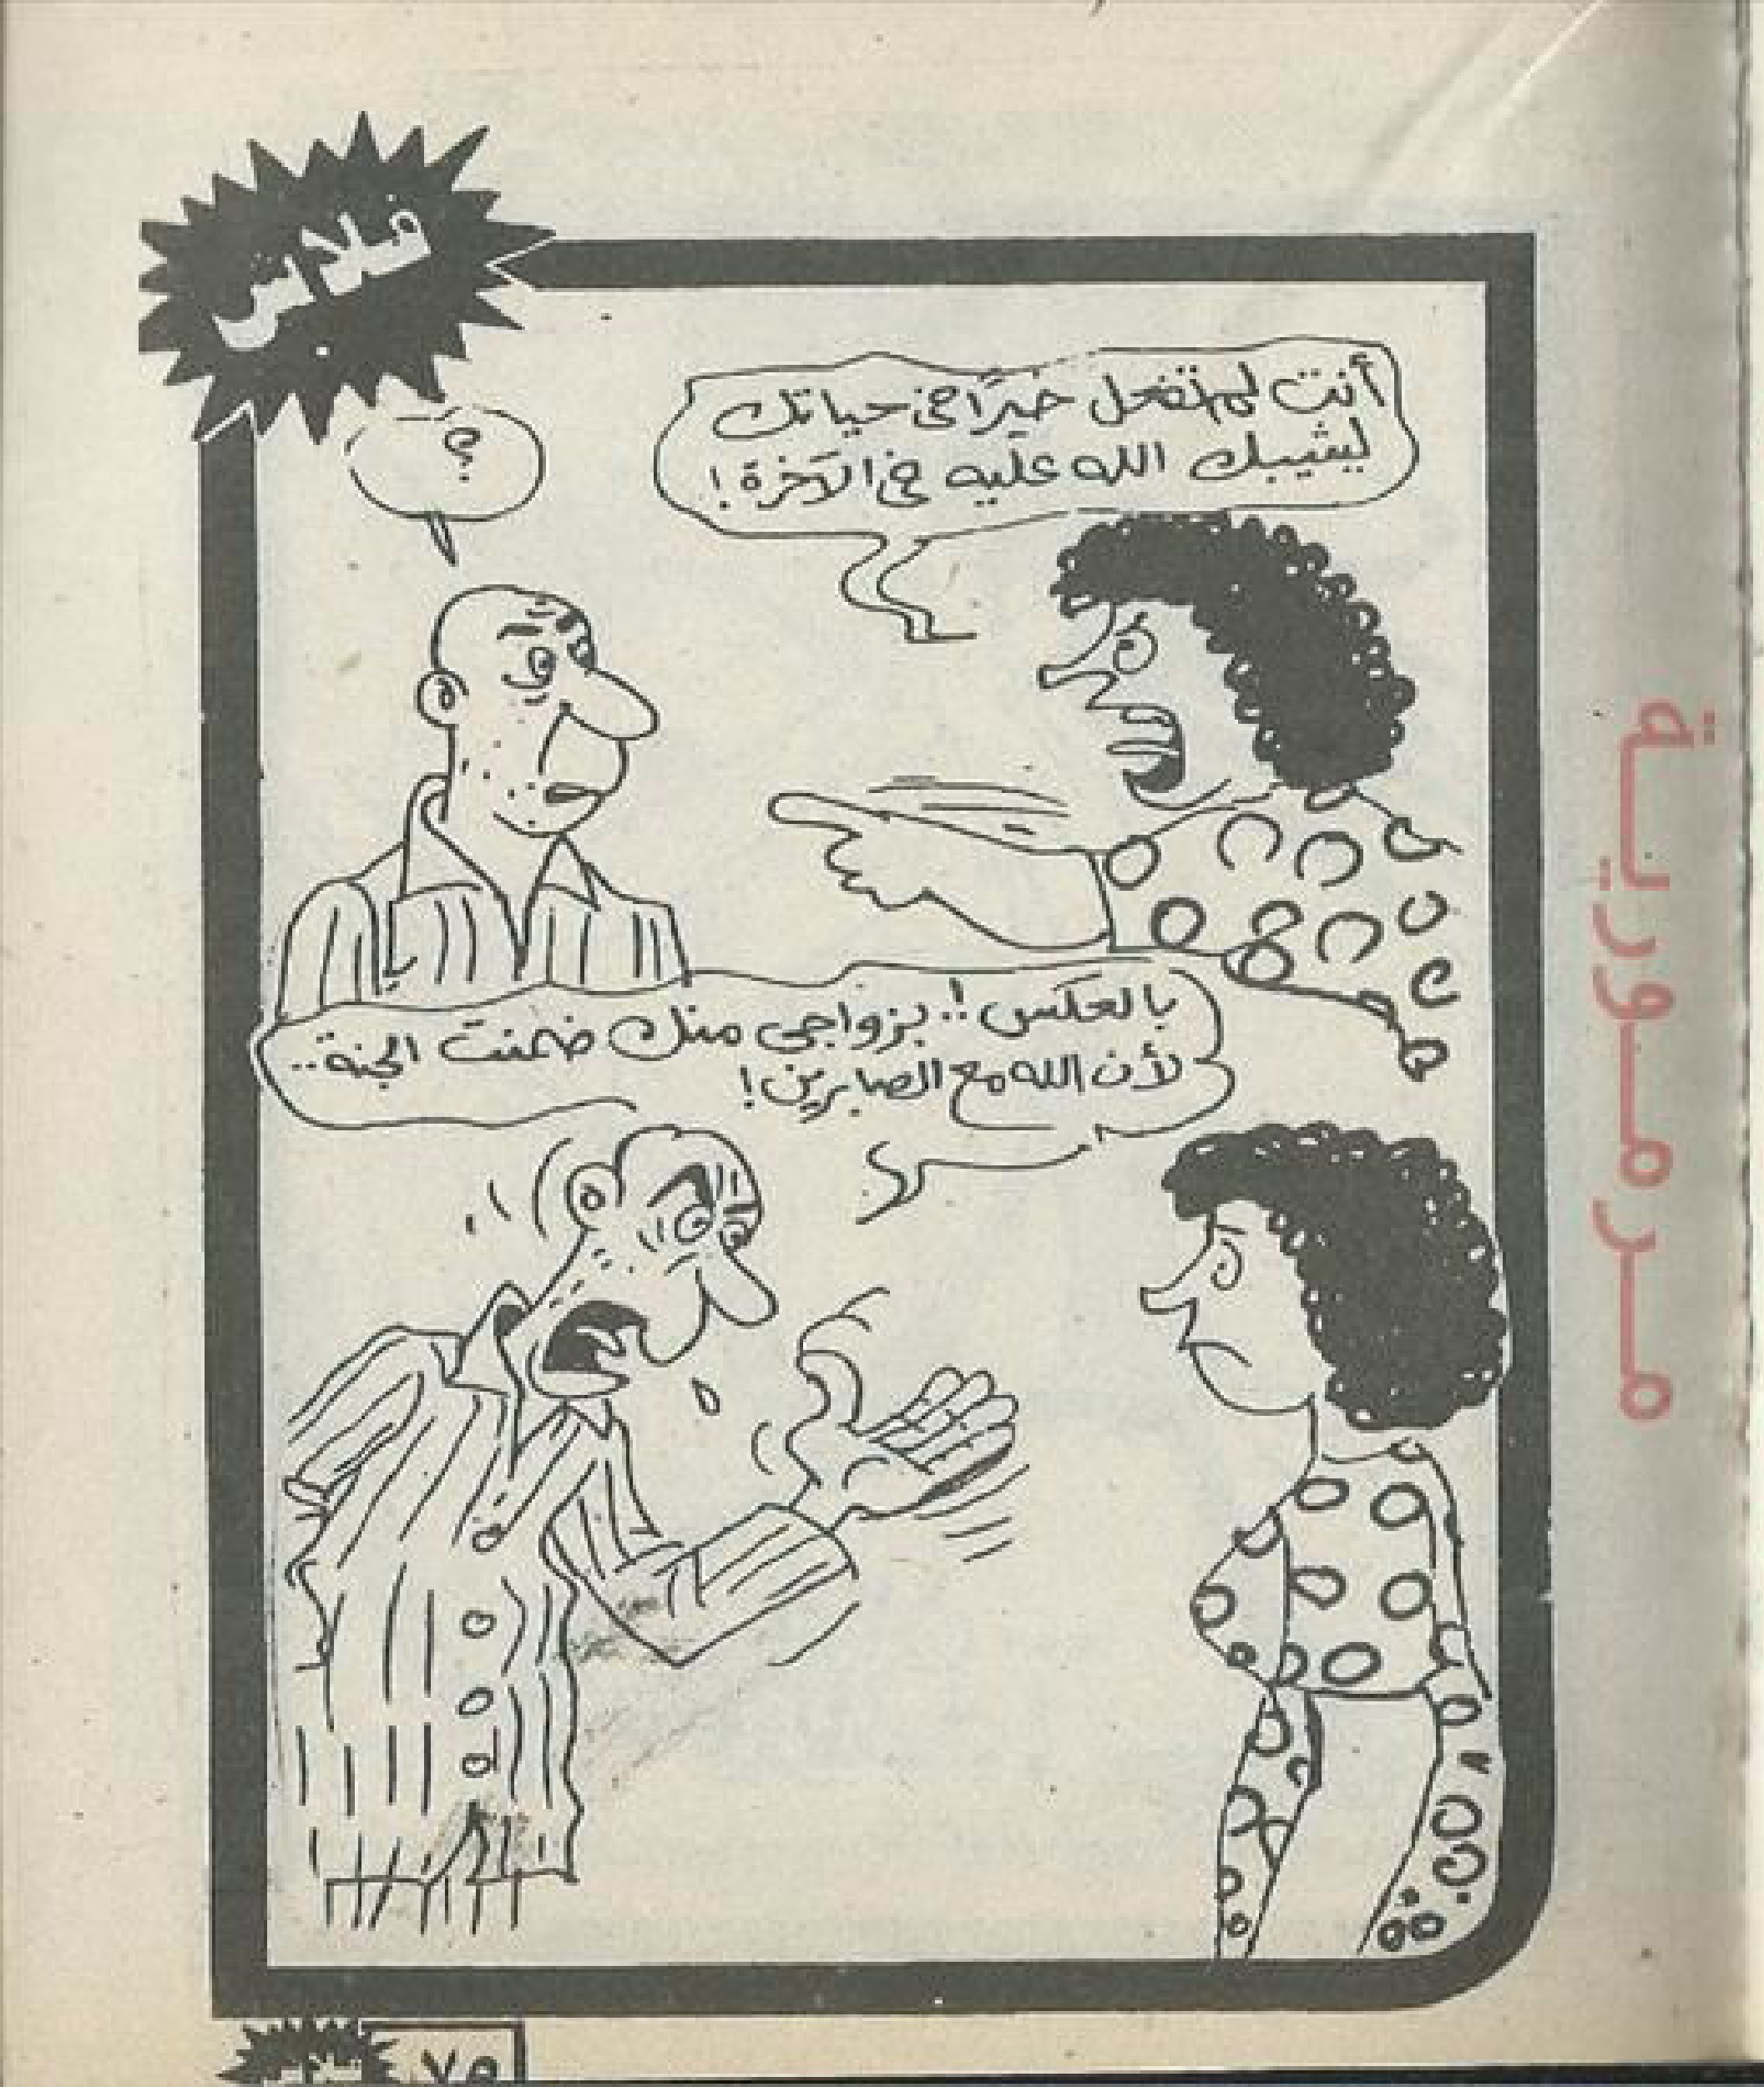 فلاش
أنت لم تفعل خيرًا في حياتك
ليثيبك الله عليه في الآخرة!
؟
بالعكس!.. بزواجي منك ضمنت الجنة..
لأن الله مع الصابرين!
مرمورية
٧٥